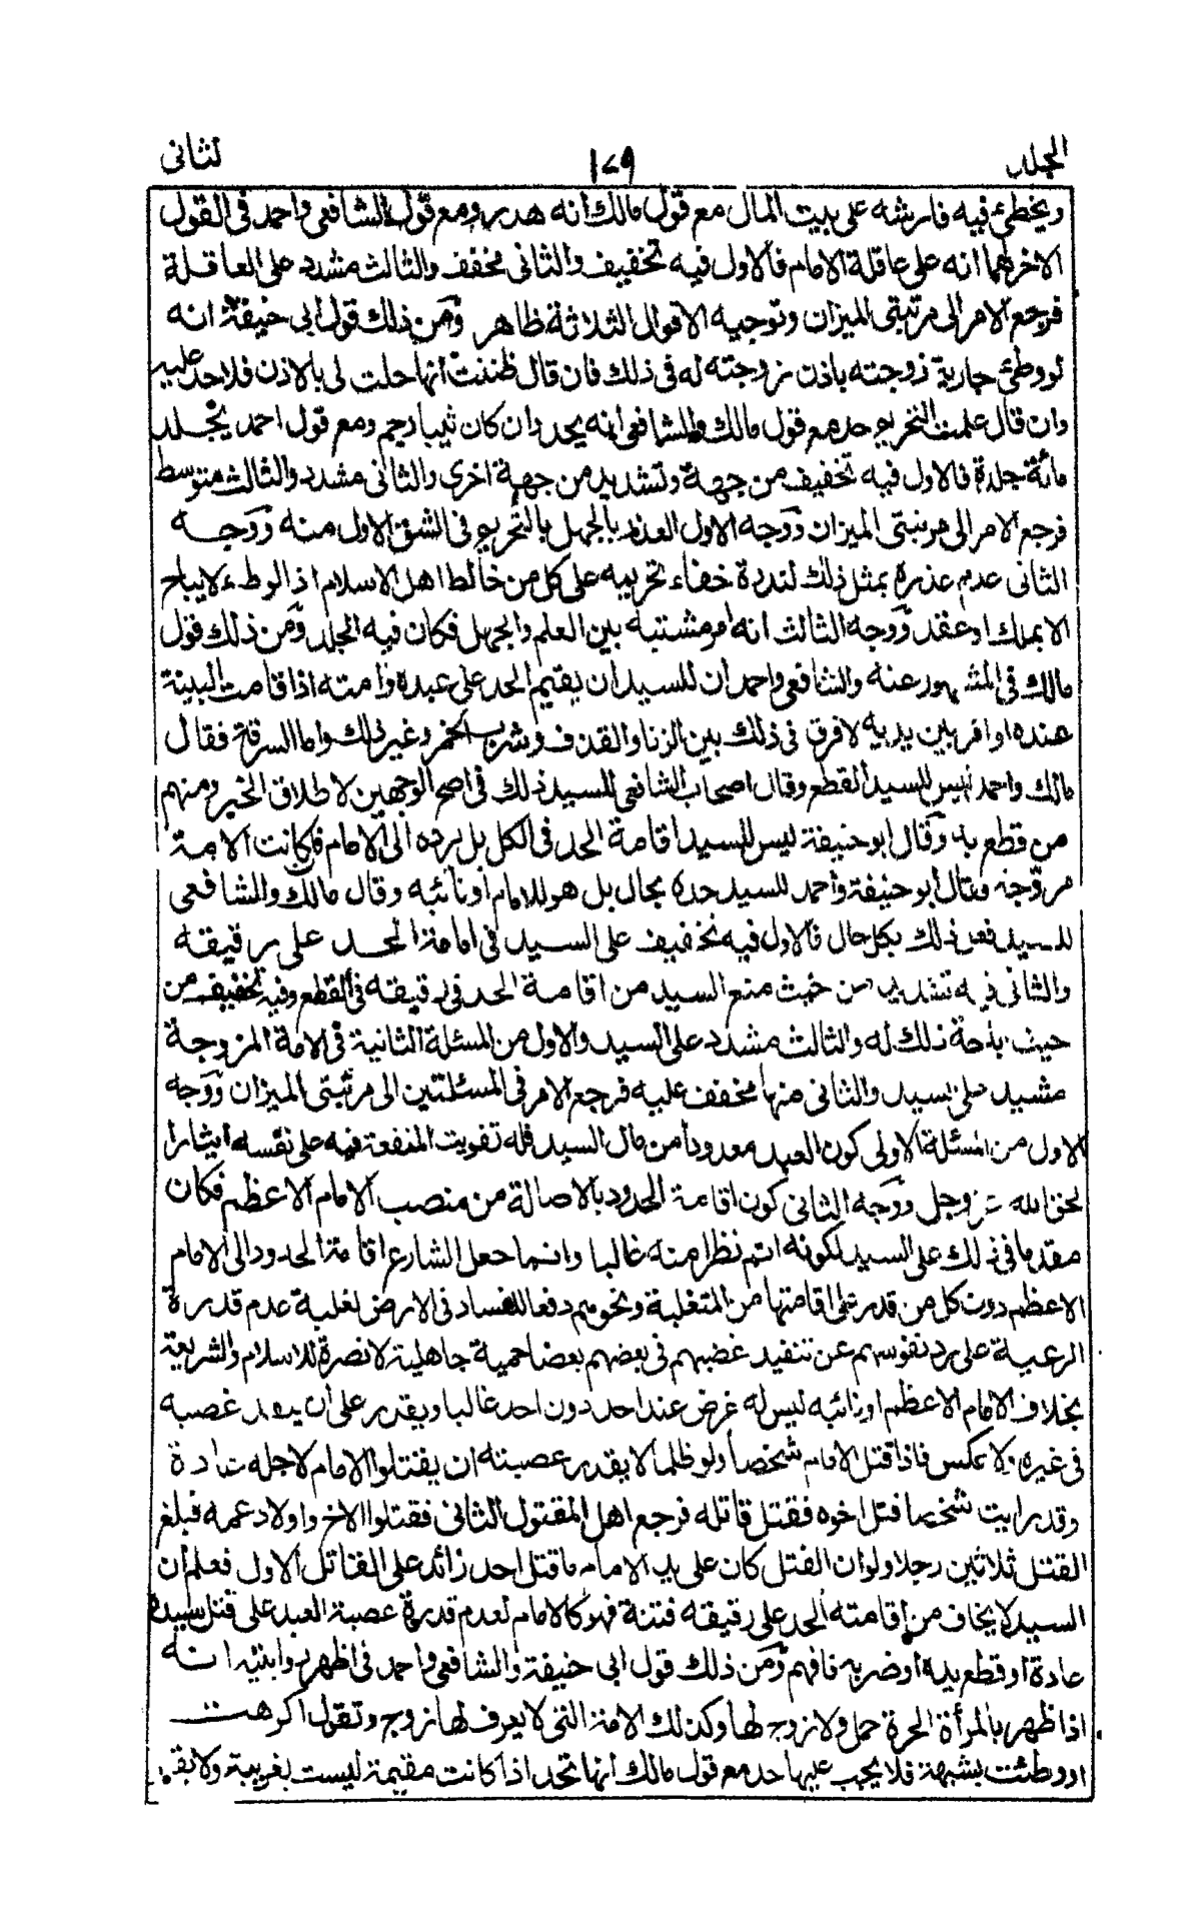 الجلد ١٧٩ الثانى
ويخطئ فيه فارشه على بيت المال مع قول مالك انه هدر ومع قول الشافعى واحمد فى القول
الاخر لهما انه على عاقلة الامام فالاول فيه تخفيف والثانى مخفف والثالث مشدد على العاقلة
فرجع الامر الى مرتبتى الميزان وتوجيه الاقوال الثلاثة ظاهر ومن ذلك قول أبى حنيفة انه
لو وطئ جارية زوجته باذن زوجته له فى ذلك فان قال ظننت أنها حلت لى بالاذن فلا حد عليه
وان قال علمت التحريم حد مع قول مالك والشافعى انه يحد وان كان ثيبا رجم ومع قول احمد يجلد
مائة جلدة فالاول فيه تخفيف من جهة وتشديد من جهة اخرى والثانى مشدد والثالث متوسط
فرجع الامر الى مرتبتى الميزان ووجه الاول العذر بالجهل بالتحريم فى الشق الاول منه ووجه
الثانى عدم عذره بمثل ذلك لندرة خفاء تحريمه على كل من خالط اهل الاسلام اذ الوطء لا يباح
الا بملك او عقد ووجه الثالث انه امر مشتبه بين العلم والجهل فكان فيه الجلد ومن ذلك قول
مالك فى المشهور عنه والشافعى واحمد ان للسيد ان يقيم الحد على عبده وأمته اذا قامت البينة
عنده او اقر بين يديه لا فرق فى ذلك بين الزنا والقذف وشرب الخمر وغير ذلك واما السرقة فقال
مالك واحمد ليس للسيد القطع وقال اصحاب الشافعى للسيد ذلك فى اصح الوجهين لاطلاق الخبر ومنهم
من قطع به وقال ابو حنيفة ليس للسيد اقامة الحد فى الكل بل يرده الى الامام فان كانت الامة
مزوجة فقال أبو حنيفة وأحمد للسيد حده بحال بل هو للامام او نائبه وقال مالك والشافعى
للسيد فعل ذلك بكل حال فالاول فيه تخفيف على السيد فى اقامة الحد على رقيقه
والثانى فيه تشديد من حيث منع السيد من اقامة الحد فى رقيقه فى القطع وفيه تخفيف من
حيث اباحة ذلك له والثالث مشدد على السيد والاول من المسئلة الثانية فى الامة المزوجة
مشيد على السيد والثانى منها مخفف عليه فرجع الامر فى المسئلتين الى مرتبتى الميزان ووجه
الاول من المسئلة الاولى كون العبد معدودا من مال السيد فله تفويت المنفعة فيه على نفسه ايثارا
لحق الله عز وجل ووجه الثانى كون اقامة الحدود بالاصالة من منصب الامام الاعظم فكان
مقدما فى ذلك على السيد لكونه اتم نظرا منه غالبا وانما جعل الشارع اقامة الحدود الى الامام
الاعظم دون كل من قدر على اقامتها من المتغلبة ونحوهم دفعا للفساد فى الارض لغلبة عدم قدرة
الرعية على رد نفوسهم عن تنفيد غضبهم فى بعضهم بعضا حمية جاهلية لا نصرة للاسلام والشريعة
بخلاف الامام الاعظم او نائبه ليس له غرض عند احد دون احد غالبا ويقدر على أن ينفد غضبه
فى غيره ولا عكس فاذا قتل الامام شخصا ولو ظلما لا يقدر عصبته ان يقتلوا الامام لاجله عادة
وقد رايت شخصا قتل اخوه فقتل قاتله فرجع اهل المقتول الثانى فقتلوا الاخ واولاد عمه فبلغ
القتل ثلاثين رجلا ولو ان القتل كان على يد الامام ما قتل احد زائد على القاتل الاول فعلم ان
السيد لا يخاف من إقامته الحد على رقيقه فتنة فهو كالامام لعدم قدرة عصبة العبد على قتل سيده
عادة او قطع يده او ضربه فافهم ومن ذلك قول ابى حنيفة والشافعى واحمد فى اظهر روايتيه انه
اذا ظهر بالمرأة الحرة حمل ولا زوج لها وكذلك الامة التى لا يعرف لها زوج وتقول اكرهت
او وطئت بشبهة فلا يجب عليها حد مع قول مالك انها تحد اذا كانت مقيمة ليست بغريبة ولا يقبل